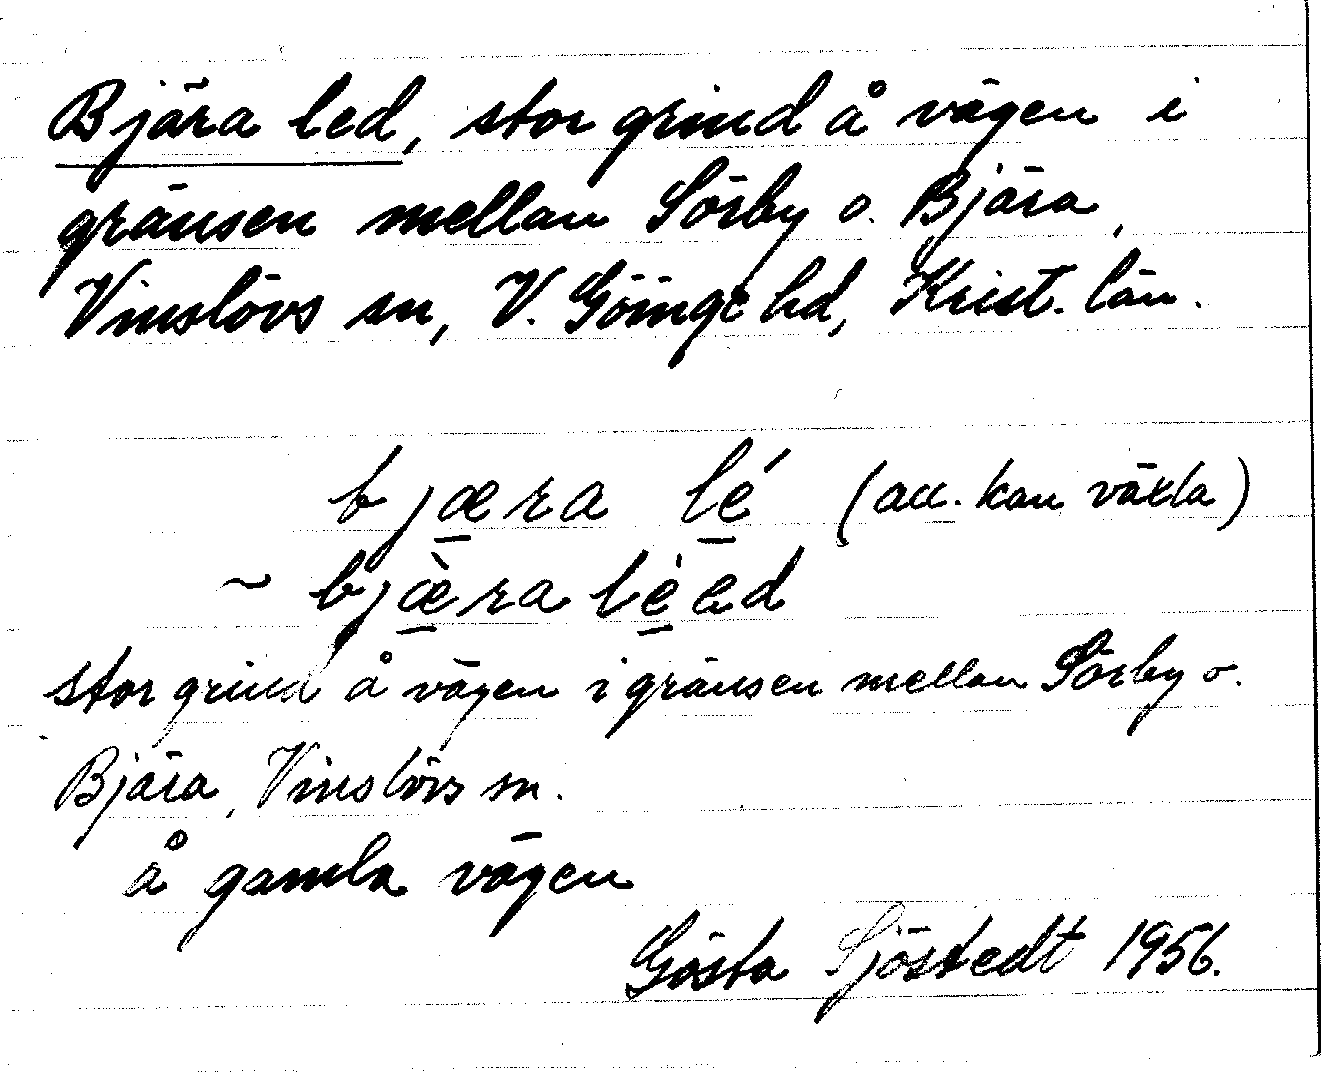 Bjära led, stor grind å vägen i
gränsen mellan Sörby o. Bjära,
Vinslövs sn, V. Göinge hd, Krist. län.
bjæ̱ra lé̱ (acc. kan växla)
~ bjæ̱̀ra lè̱ed
stor grind å vägen i gränsen mellan Sörby o.
Bjära, Vinslövs sn.
å gamla vägen
Gösta Sjöstedt 1956.